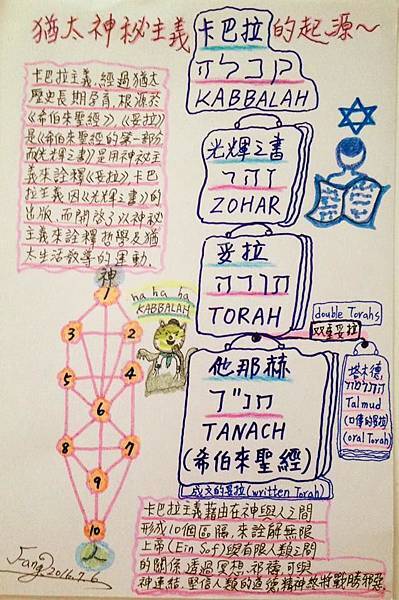 猶太神秘主義卡巴拉的起源～
קבלה
KABBALAH
卡巴拉主義,經過猶太
歷史長期孕育,根源於
《希伯來聖經》,《妥拉》
是《希伯來聖經的第一部分
而《光輝之書》是用神秘主
義來詮釋《妥拉》,卡巴
拉主義因《光輝之書》的
出版,而開啟了以神秘
主義來詮釋哲學及猶
太生活教導的運動.
光輝之書
זהר
ZOHAR
妥拉
תורה
TORAH
double Torahs
雙重妥拉
他那赫
תנ"ך
TANACH
(希伯來聖經)
成文的妥拉(written Torah)
塔木德
תלמוד
Talmud
(口傳的妥拉)
(oral Torah)
神
1
3
2
5
4
6
8
7
9
10
人
ha ha ha
KABBALAH
卡巴拉主義藉由在神與人之間
形成10個區隔,來詮解無限
上帝(Ein Sof)與有限人類之間
的關係.透過冥想.祈禱,可與
神連結.堅信人類的道德,精神終將戰勝邪惡.
Fang 2016.7.6